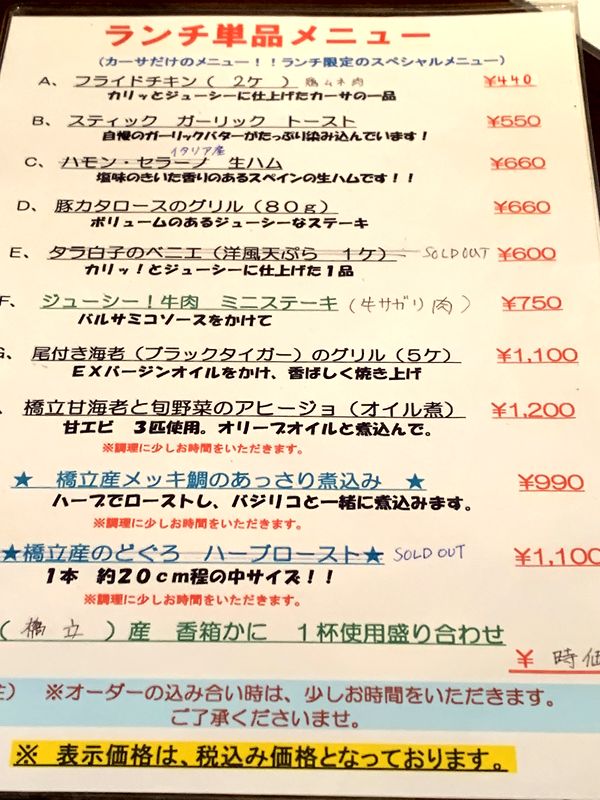 ランチ単品メニュー
(カーサだけのメニュー！！ランチ限定のスペシャルメニュー)
A、 フライドチキン( 2ケ ) 鶏ムネ肉 ¥440
カリッとジューシーに仕上げたカーサの一品
B、 スティック ガーリック トースト ¥550
自慢のガーリックバターがたっぷり染み込んでいます！
イタリア産
C、 ハモン・セラーノ 生ハム ¥660
塩味のきいた香りのあるスペインの生ハムです！！
D、 豚カタロースのグリル(80g) ¥660
ボリュームのあるジューシーなステーキ
E、 タラ白子のベニエ(洋風天ぷら 1ケ) SOLD OUT ¥600
カリッ！とジューシーに仕上げた1品
F、 ジューシー！牛肉 ミニステーキ (牛サガリ肉) ¥750
バルサミコソースをかけて
G、 尾付き海老(ブラックタイガー)のグリル(5ケ) ¥1,100
EXバージンオイルをかけ、香ばしく焼き上げ
、 橋立甘海老と旬野菜のアヒージョ(オイル煮) ¥1,200
甘エビ 3匹使用。オリーブオイルと煮込んで。
※調理に少しお時間をいただきます。
★ 橋立産メッキ鯛のあっさり煮込み ★ ¥990
ハーブでローストし、バジリコと一緒に煮込みます。
※調理に少しお時間をいただきます。
★橋立産のどぐろ ハーブロースト★ SOLD OUT ¥1,100
1本 約20cm程の中サイズ！！
※調理に少しお時間をいただきます。
( 橋立 )産 香箱かに 1杯使用盛り合わせ
¥ 時価
注) ※オーダーの込み合い時は、少しお時間をいただきます。
ご了承くださいませ。
※ 表示価格は、税込み価格となっております。